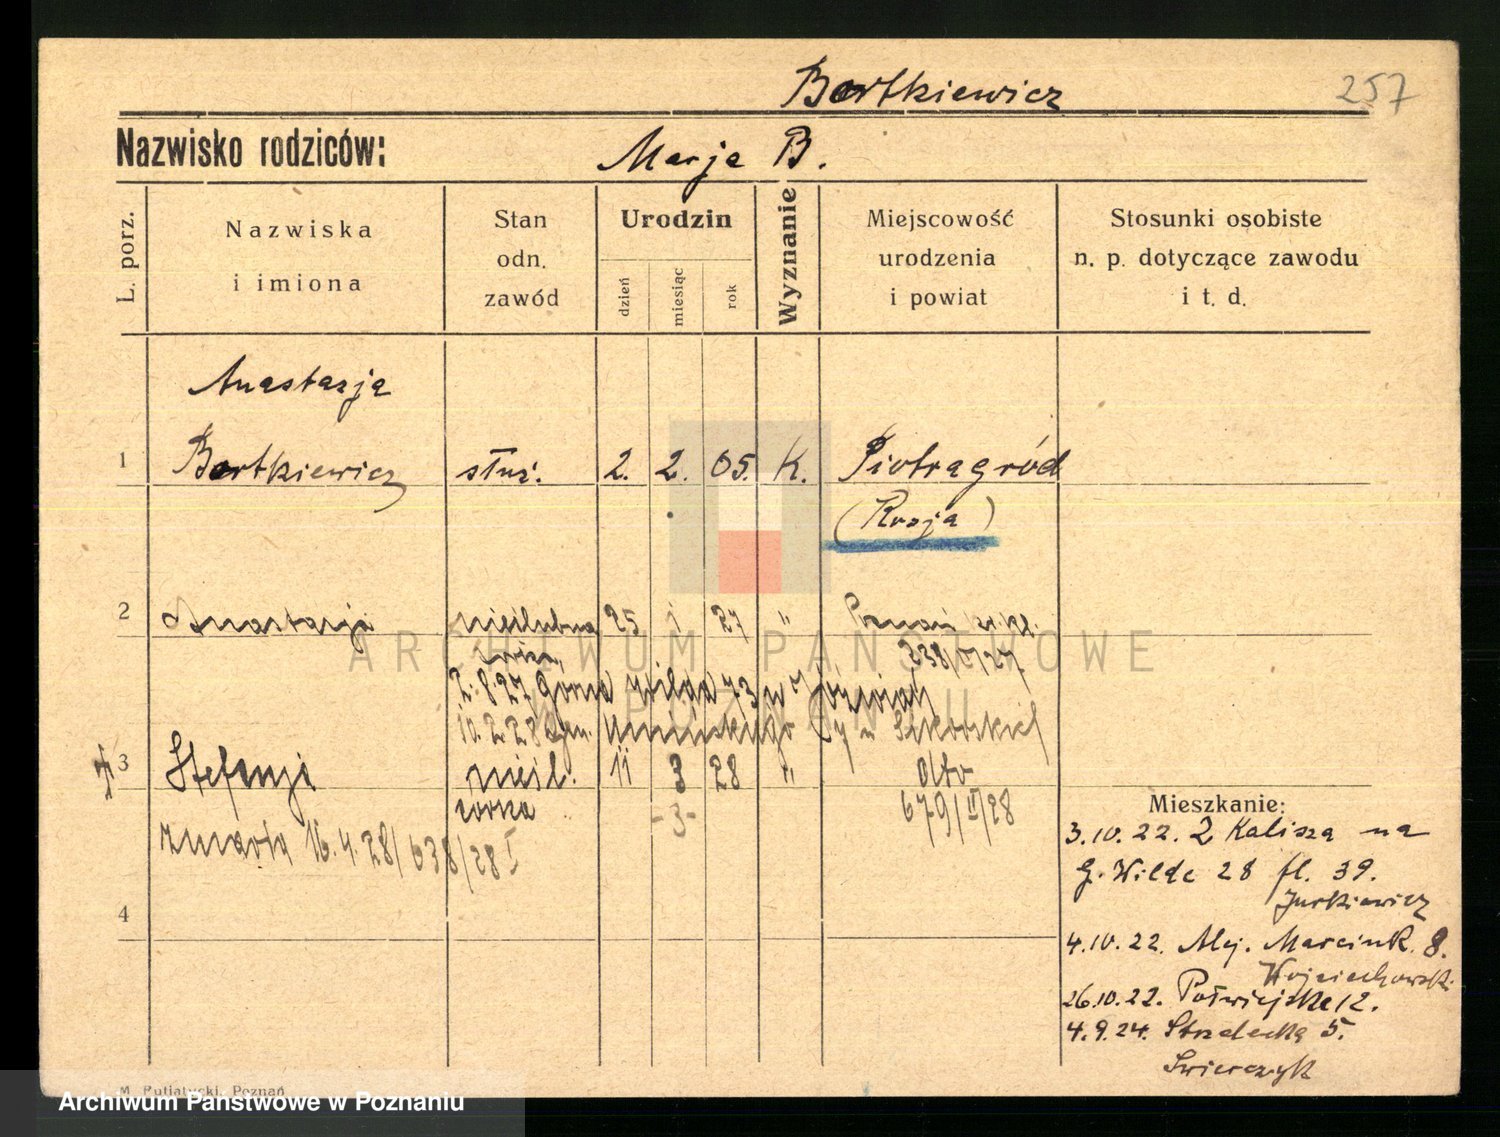 Bartkiewicz 257
Nazwisko rodziców: Marja B.
L. porz. Nazwiska i imiona Stan odn. zawód Urodzin dzień miesiąc rok Wyznanie Miejscowość urodzenia i powiat Stosunki osobiste n. p. dotyczące zawodu i t. d.
Anastazja
1 Bartkiewicz służ. 2. 2. 05. K. Piotrogród
(Rosja)
2 Anastazja nieślubna 25 i 27 " Poznań
córka 238/V/27
2.8.27 Górna Wilda 73
10.2.28 Umińskiego
3 Stefanja nieśl. 11 3 28 "
córka -3- 679/II/28
zmarła 16.4.28/638/28 I
4
Mieszkanie:
3.10.22. Z Kalisza na
G. Wilde 28 fl. 39.
Jurkiewicz
4.10.22. Alej. Marcink. 8.
Wojciechowski
26.10.22. Półwiejska 12.
4.9.24. Strzelecka 5.
Swierczyk
ARCHIWUM PAŃSTWOWE
W POZNANIU
M. Putiatycki, Poznań
Archiwum Państwowe w Poznaniu